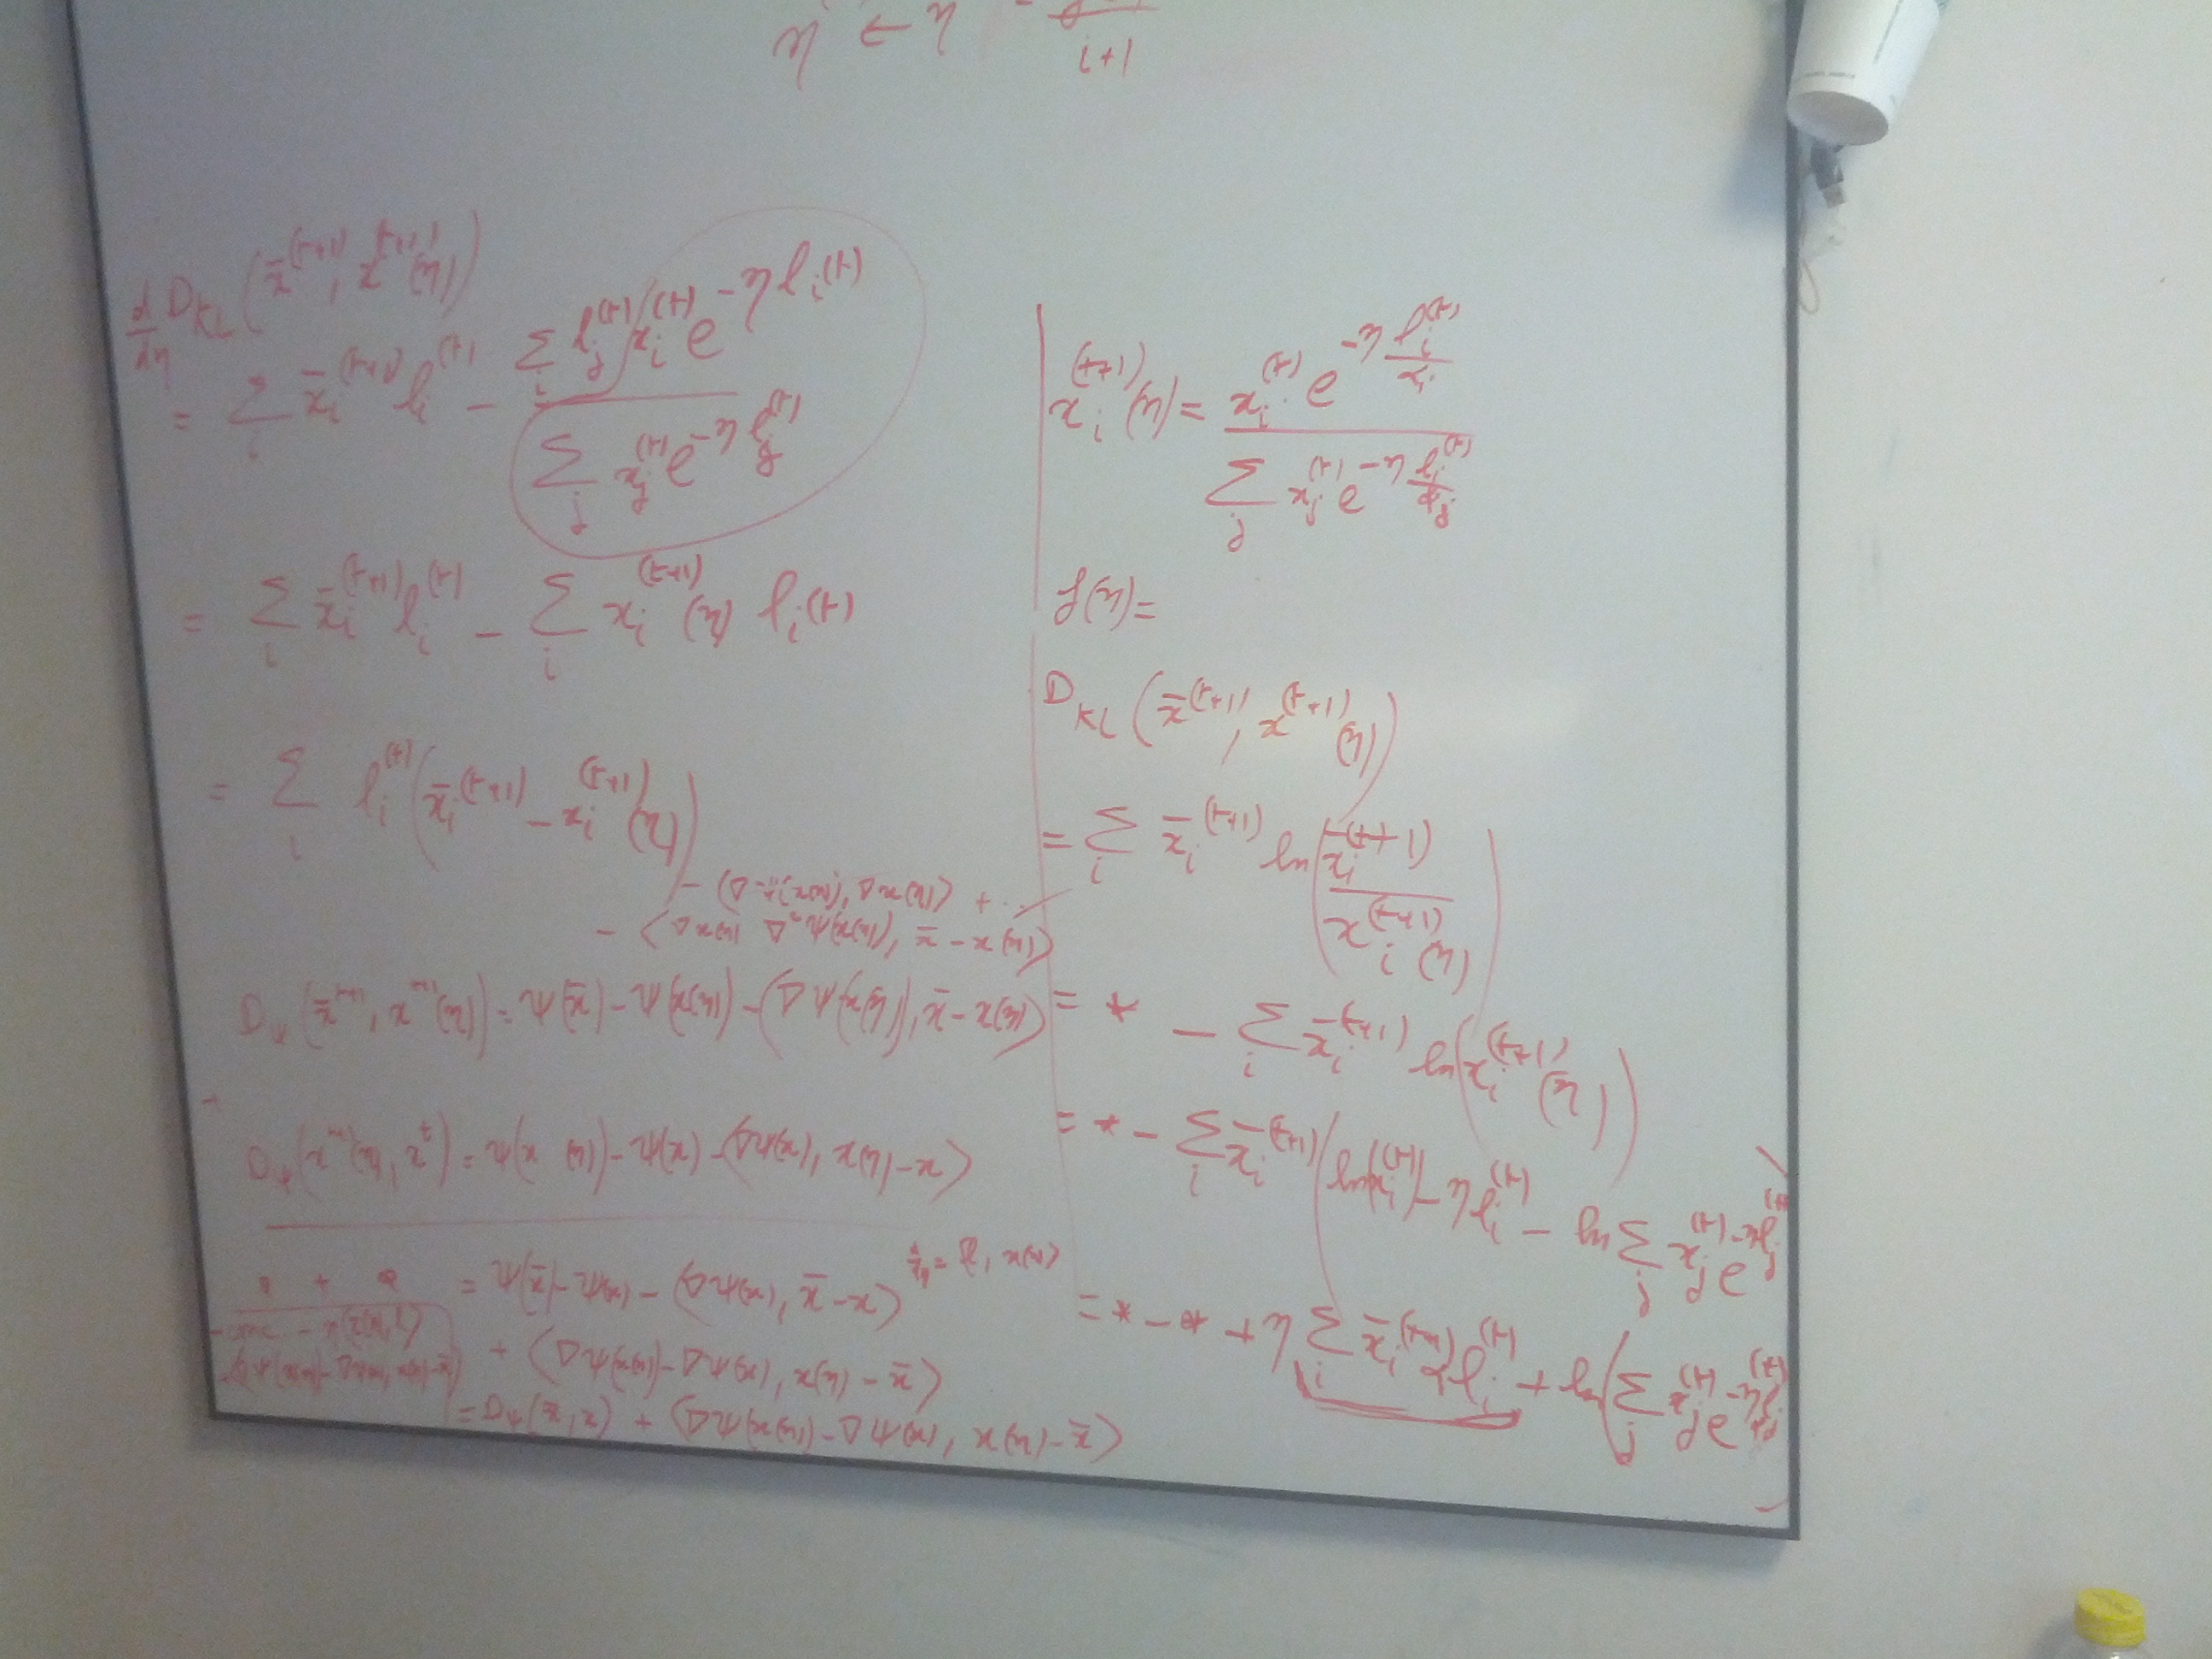 η ← η - / i+1
d/dη D_KL(x̄^(t+1), x^(t+1)(η))
= Σ_i x̄_i^(t+1) l_i^(t) - Σ_i l_j^(t) x_i^(t) e^{-η l_i^(t)} / Σ_j x_j^(t) e^{-η l_j^(t)}
= Σ_i x̄_i^(t+1) l_i^(t) - Σ_i x_i^(t+1)(η) l_i(t)
= Σ_i l_i^(t) (x̄_i^(t+1) - x_i^(t+1)(η))
- ⟨∇x(η) ∇²Ψ(x(η)), x̄ - x(η)⟩
D_Ψ(x̄^{t+1}, x^{t+1}(η)) = Ψ(x̄) - Ψ(x(η)) - ⟨∇Ψ(x(η)), x̄ - x(η)⟩
+
D_Ψ(x^{t+1}(η), x^t) = Ψ(x(η)) - Ψ(x) - ⟨∇Ψ(x), x(η) - x⟩
= Ψ(x̄) - Ψ(x) - ⟨∇Ψ(x), x̄ - x⟩
+ ⟨∇Ψ(x(η)) - ∇Ψ(x), x(η) - x̄⟩
= D_Ψ(x̄, x) + ⟨∇Ψ(x(η)) - ∇Ψ(x), x(η) - x̄⟩
x_i^(t+1)(η) = x_i^(t) e^{-η l_i^(t)/α_i} / Σ_j x_j^(t) e^{-η l_i^(t)/α_j}
f(η) =
D_KL(x̄^(t+1), x^(t+1)(η))
= Σ_i x̄_i^(t+1) ln(x̄_i^(t+1) / x_i^(t+1)(η))
= * - Σ_i x̄_i^(t+1) ln(x_i^(t+1)(η))
= * - Σ_i x̄_i^(t+1) (ln(x_i^(t)) - η l_i^(t) - ln Σ_j x_j^(t) e^{-η l_j^(t)}
= * - * + η Σ_i x̄_i^(t+1) l_i^(t) + ln(Σ_j x_j^(t) e^{-η l_j^(t)}